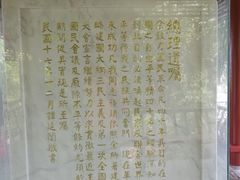 總理遺囑
余致力國民革命凡四十年其目的在求中
國之自由平等積四十年之經驗深知欲
達到此目的必須喚起民眾及聯合世界上以
平等待我之民族共同奮鬥現在革命尚
未成功凡我同志務須依照余所著建國方
略建國大綱三民主義及第一次全國代表
大會宣言繼續努力以求貫徹最近主張開
國民會議及廢除不平等條約尤須於最短
期間促其實現是所至囑
民國十六年十二月譚延闓敬書